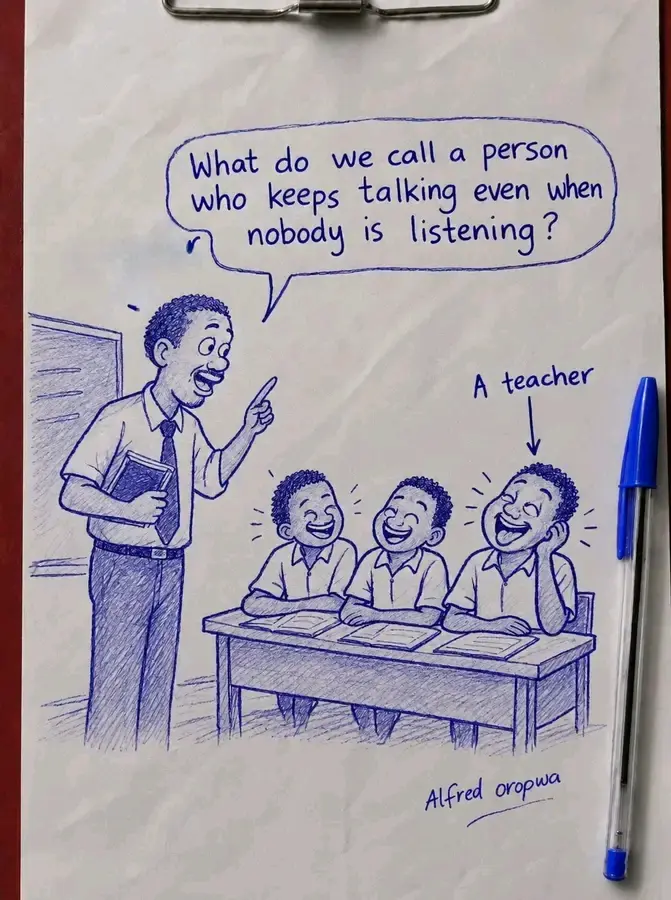 What do we call a person
who keeps talking even when
nobody is listening?
A teacher
Alfred oropwa